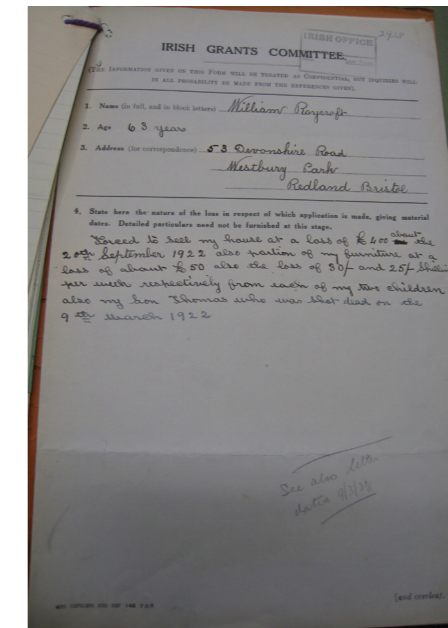 IRISH OFFICE
IRISH GRANTS COMMITTEE.
(THE INFORMATION GIVEN ON THIS FORM WILL BE TREATED AS CONFIDENTIAL, BUT INQUIRIES WILL
IN ALL PROBABILITY BE MADE FROM THE REFERENCES GIVEN).
1. Name (in full, and in block letters) William Roycroft
2. Age 63 years
3. Address (for correspondence) 53 Devonshire Road
Westbury Park
Redland Bristol
4. State here the nature of the loss in respect of which application is made, giving material
dates. Detailed particulars need not be furnished at this stage.
Forced to sell my house at a loss of £400 about the
20th September 1922 also portion of my furniture at a
loss of about £50 also the loss of 30/- and 25/-
per week respectively from each of my two children
also my son Thomas who was shot dead on the
9th March 1922
See also letter
dated
[and overleaf.